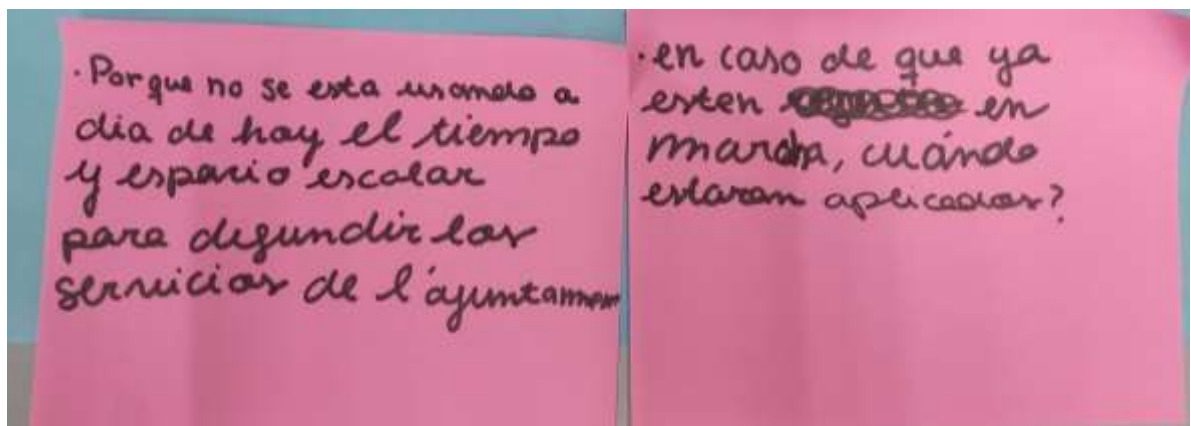 · Por que no se esta usando a
dia de hoy el tiempo
y espacio escolar
para difundir los
servicios de l'ajuntament
· en caso de que ya
esten en
marcha, cuándo
estaran aplicadas?